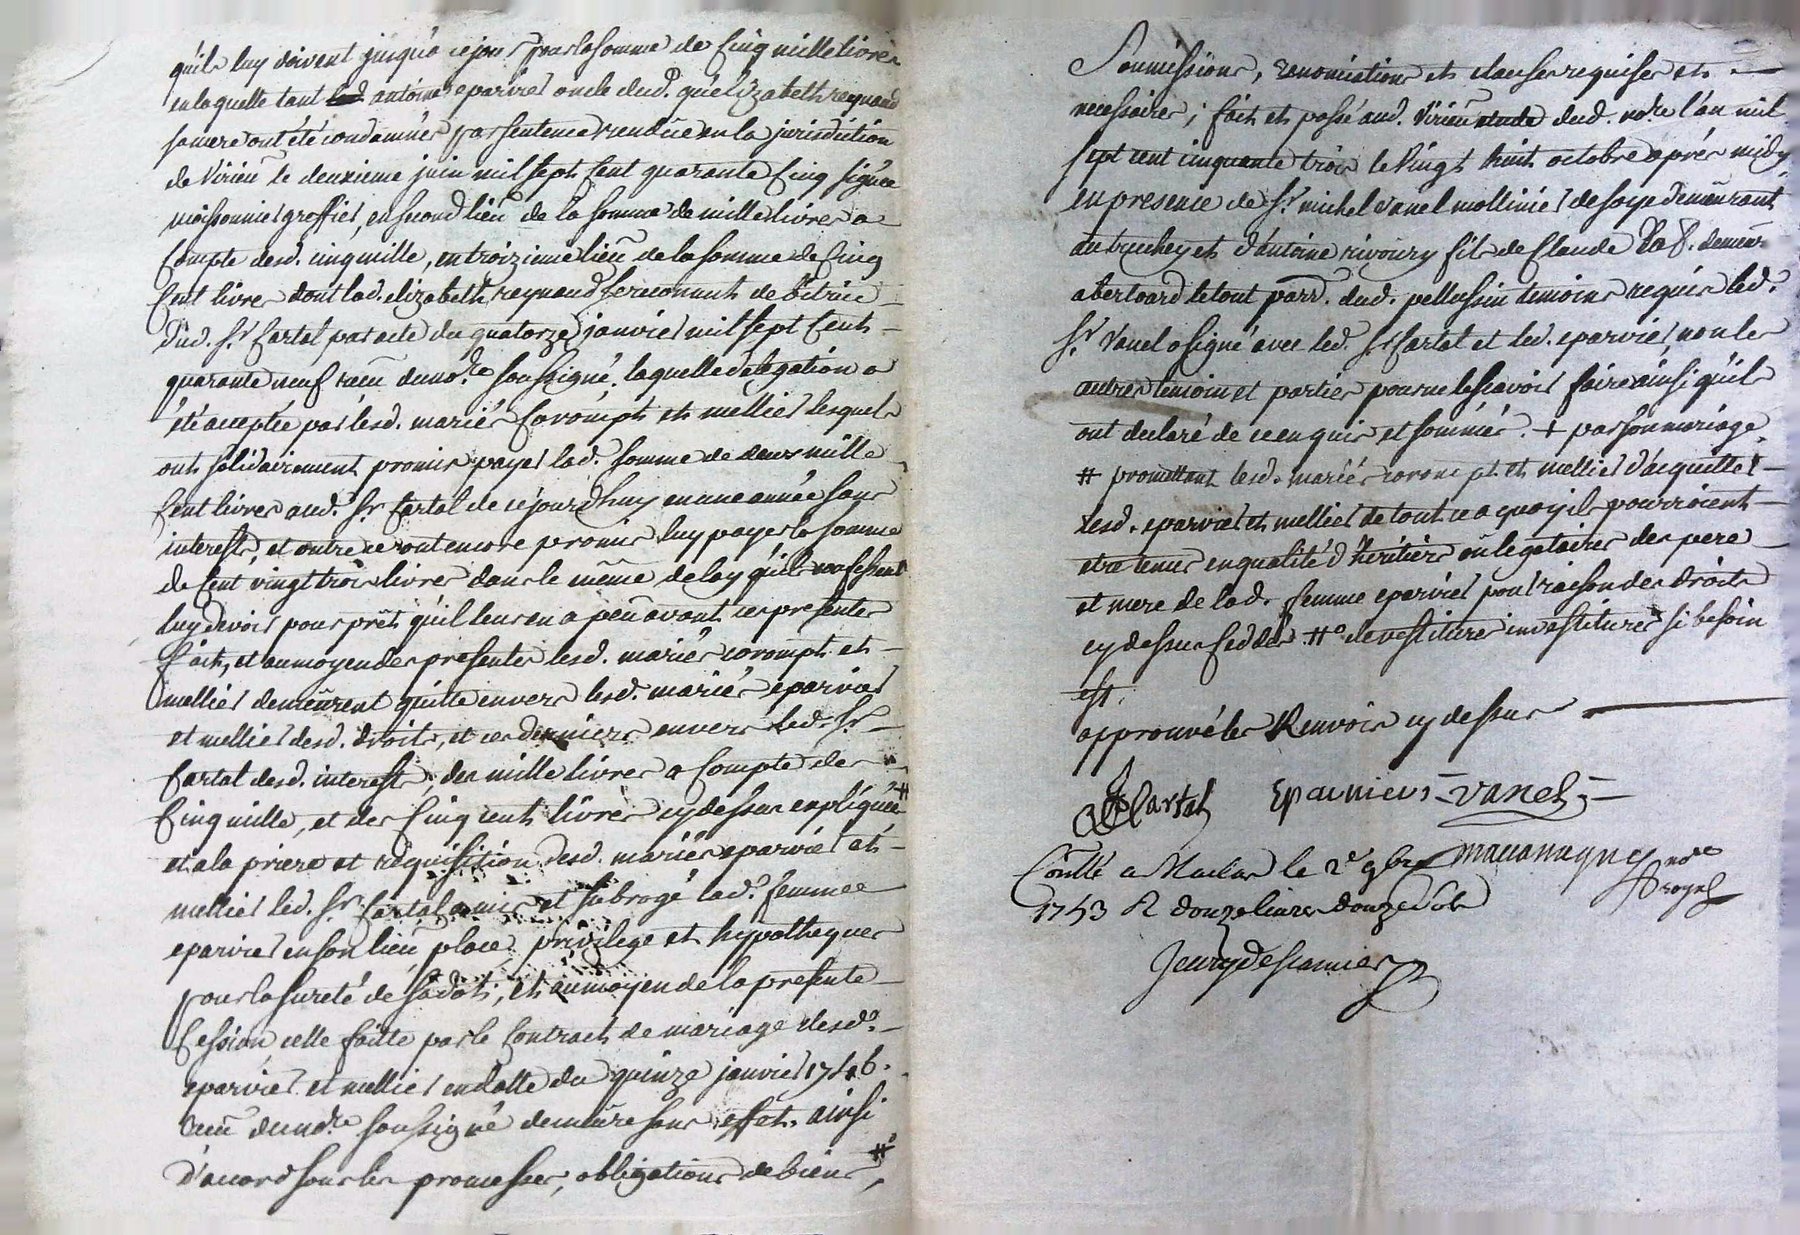 qu'ils luy doivent jusqu'a ce jour pour la somme de Cinq mille livres
en laquelle tant led. antoine eparvier oncle dud. qu'elizabeth reynaud
sa mere ont été condamnés par sentence rendüe en la jurisdiction
de Virieu le deuxieme juin mil sept Cent quarante Cinq signée
moissonnier greffier, en second lieu de la somme de mille livres a
Compte desd. cinq mille, en troizieme lieu de la somme de Cinq
Cent livres dont lad. elizabeth reynaud se reconnut debitrice
dud. Sr. Cartal par acte du quatorze janvier mil sept Cents
quarante neuf recu du no.re soussigné. laquelle delegation a
été acceptée par lesd. mariés Corompt et mellier lesquels
ont solidairement promis payer lad. somme de deux mille
Cent livres aud. Sr. Cartal de ce jourd'huy en une année sans
interest, et outre ce ont encore promis luy payer la somme
de Cent vingt trois livres dans le même delay qu'ils confessent
luy devoir pour prêt qu'il leur en a peu avant ces presentes
fait, et au moyen des presentes lesd. mariés corompt et
mellier demeurent quitte envers lesd. mariés eparvier
et mellier desd. droits, et ces derniers envers led. Sr.
Cartal desd. interest, des mille livres a Compte des
Cinq mille, et des Cinq cents livres cy dessus expliquée #
et a la priere et requisition desd. mariés eparvier et
mellier led. Sr. Cartal a mis et subrogé lad. femme
eparvier en son lieu, place, privilege et hypotheques
pour la sureté de sa dot, et au moyen de la presente
Cession, celle faitte par le Contract de mariage desd.
eparvier et mellier en datte du quinze janvier 1746.
recu dud. n.re soussigné demeure sans effet. ainsi
d'accord sous les promesses, obligations de biens, #o
Soumissions, renonciations et clauses requises et
necessaires; fait et passé aud. Virieu etude dud. no.re l'an mil
sept cent cinquante trois le Vingt huit octobre après midy
en presence de Sr. michel vanel mollinier de soye demeurant
au truchey et d'antoine rivoiry fils de Claude demeur.
a bertoard le tout parr. dud. pellussin temoins requis led.
Sr. Vanel a signé avec led. Sr. Cartal et led. eparvier, non les
autres temoin et parties pour ne le scavoir faire ainsi qu'ils
ont declaré de ce enquis et sommés. + par son mariage.
# promettent lesd. mariés corompt et mellier d'acquitter
lesd. eparvier et mellier de tout ce a quoy ils pourroient
etre tenus en qualité d'heritiers ou legataires des pere
et mere de lad. femme eparvier pour raison des droits
cy dessus cedder. #o devestitures investitures si besoin
est.
approuvé les Renvois cy dessus
Cartal Eparvier Vanel
Conllé a Maclas le 2e 9bre
1753 R douze livres douze sols
nore royal